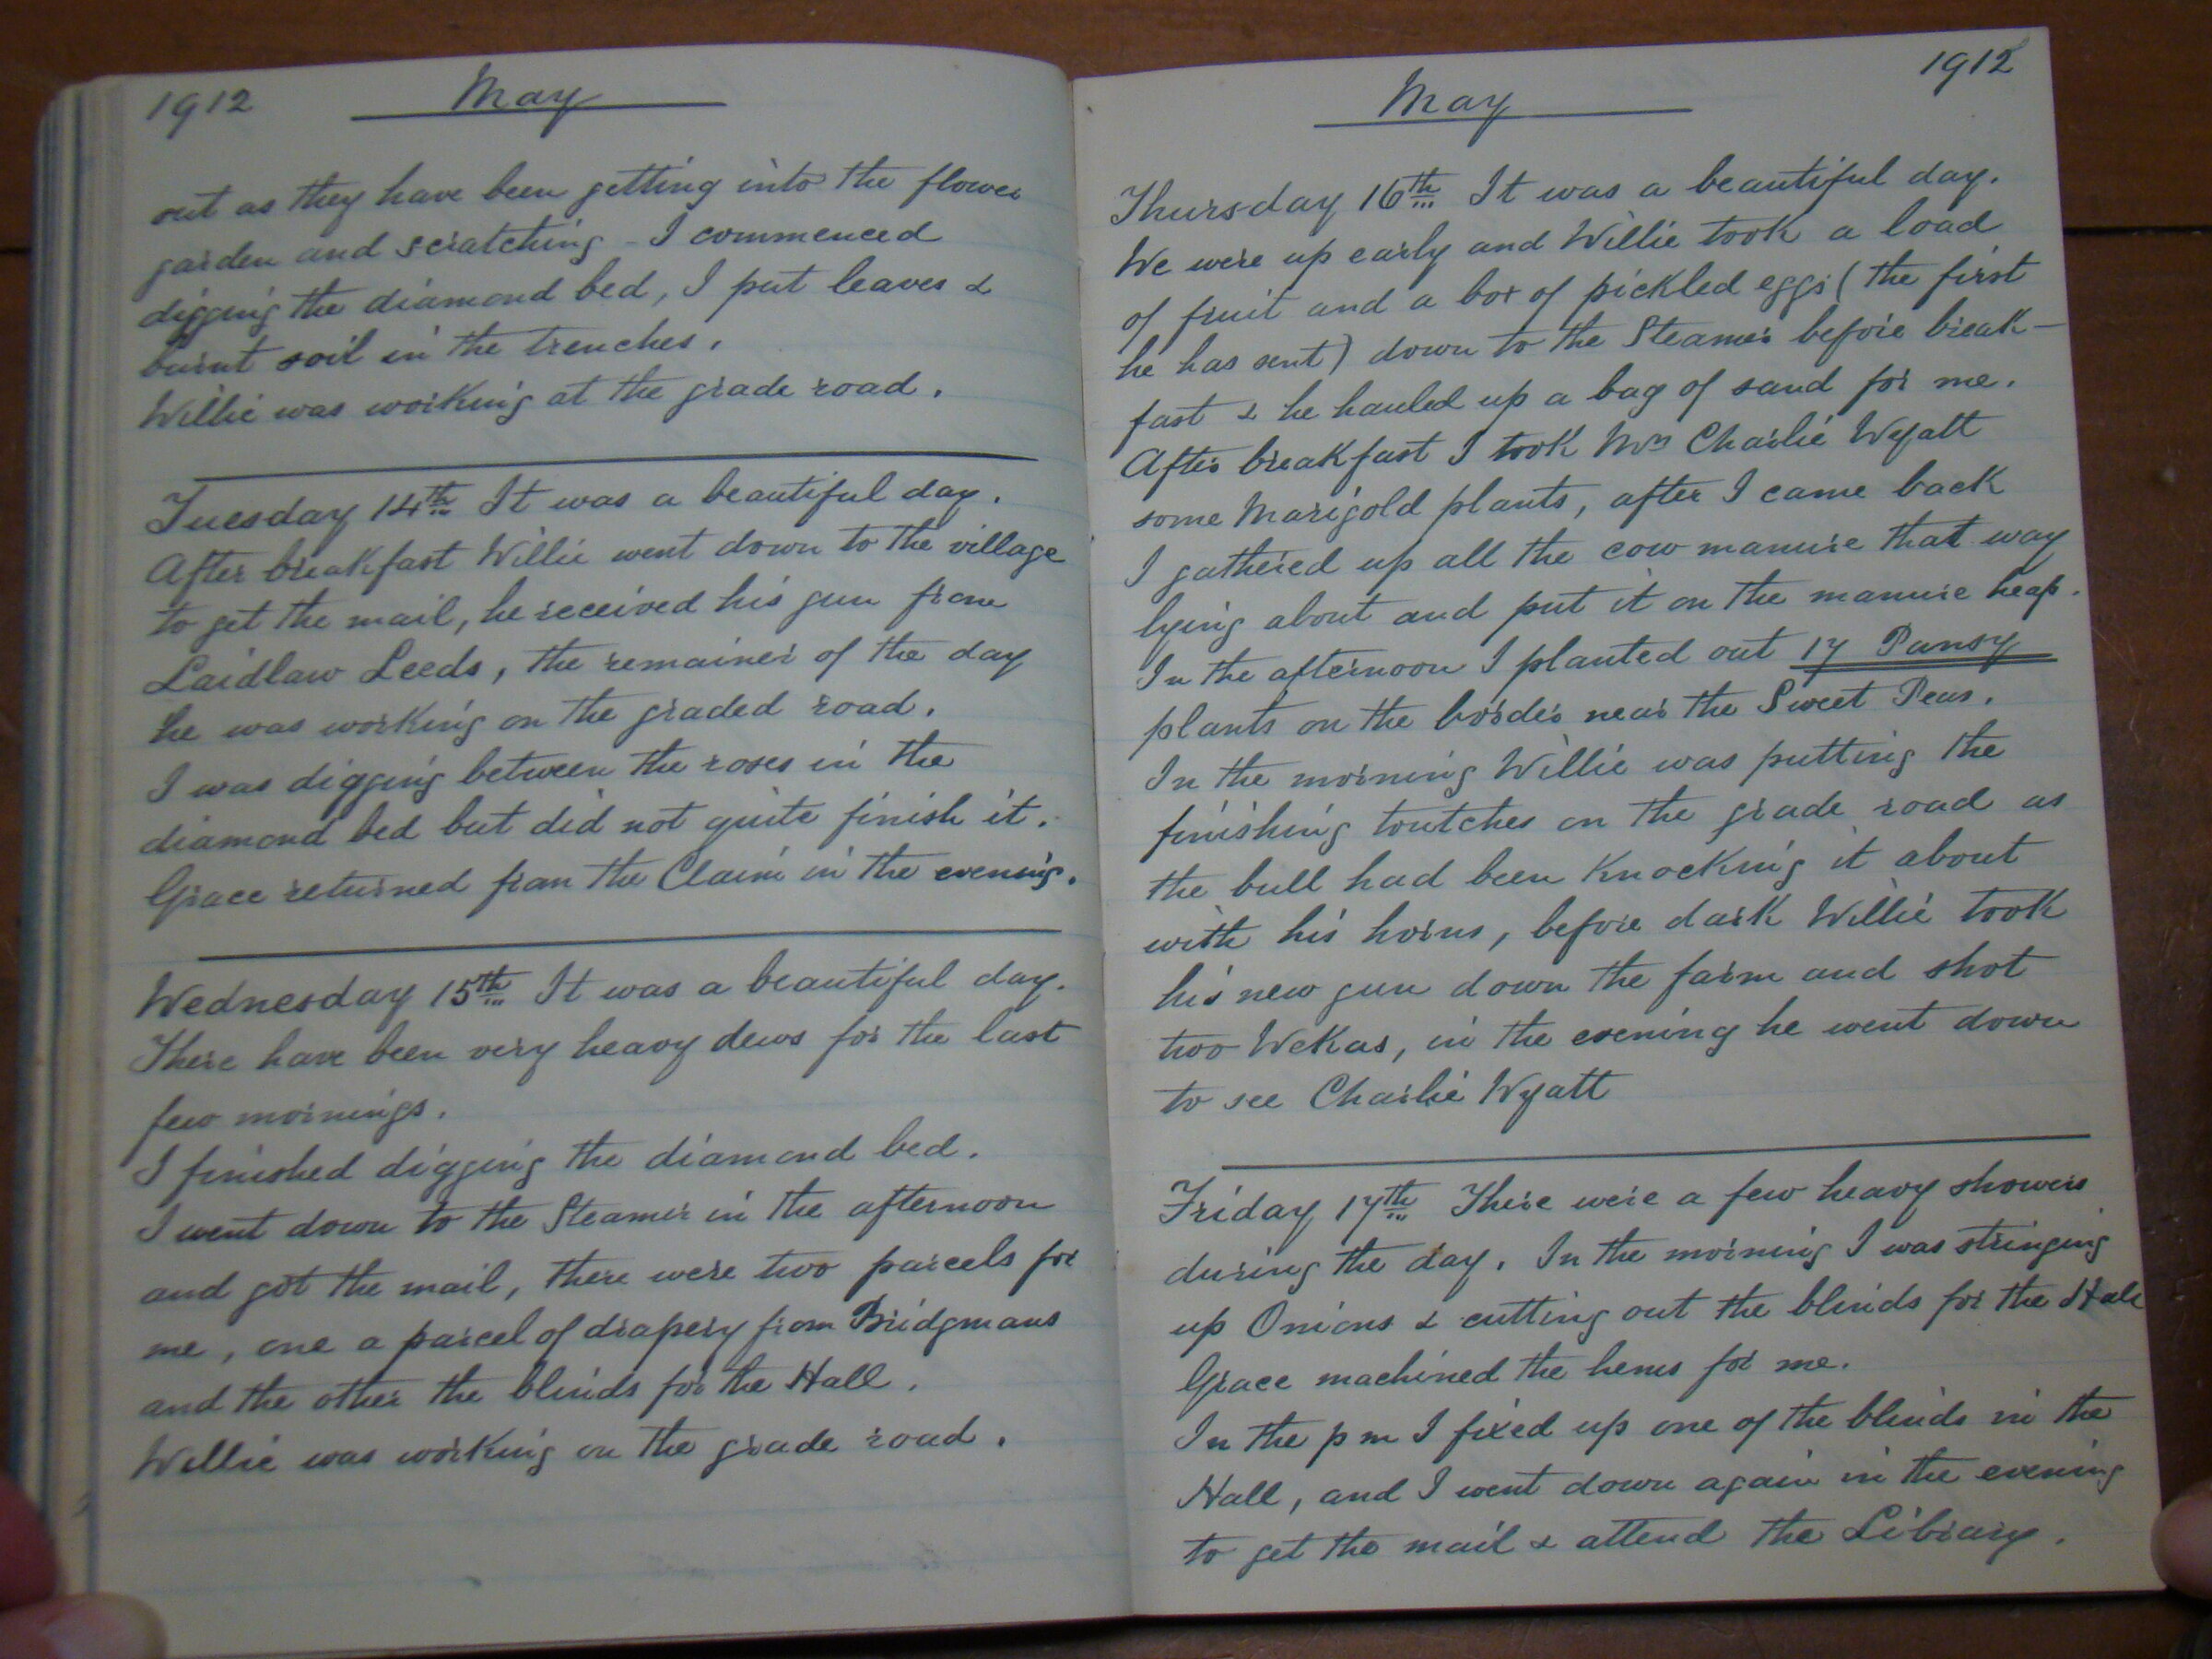 1912 May
out as they have been getting into the flower
garden and scratching - I commenced
digging the diamond bed, I put leaves &
burnt soil in the trenches.
Willie was working at the grade road.
Tuesday 14th It was a beautiful day.
After breakfast Willie went down to the village
to get the mail, he received his gun from
Laidlaw Leeds, the remainer of the day
he was working on the graded road.
I was digging between the roses in the
diamond bed but did not quite finish it.
Grace returned from the Claim in the evening.
Wednesday 15th It was a beautiful day.
There have been very heavy dews for the last
few mornings.
I finished digging the diamond bed.
I went down to the Steamer in the afternoon
and got the mail, there were two parcels for
me, one a parcel of drapery from Bridgmans
and the other the blinds for the Hall.
Willie was working on the grade road.
May 1912
Thursday 16th It was a beautiful day.
We were up early and Willie took a load
of fruit and a box of pickled eggs (the first
he has sent) down to the Steamer before break-
fast & he hauled up a bag of sand for me.
After breakfast I took Mrs Charlie Wyatt
some Marigold plants, after I came back
I gathered up all the cow manure that way
lying about and put it on the manure heap.
In the afternoon I planted out 17 Pansy
plants on the border near the Sweet Peas.
In the morning Willie was putting the
finishing toutches on the grade road as
the bull had been knocking it about
with his horns, before dark Willie took
his new gun down the farm and shot
two Wekas, in the evening he went down
to see Charlie Wyatt
Friday 17th There were a few heavy showers
during the day. In the morning I was stringing
up Onions & cutting out the blinds for the Hall
Grace machined the hems for me.
In the p m I fixed up one of the blinds in the
Hall, and I went down again in the evening
to get the mail & attend the Library.